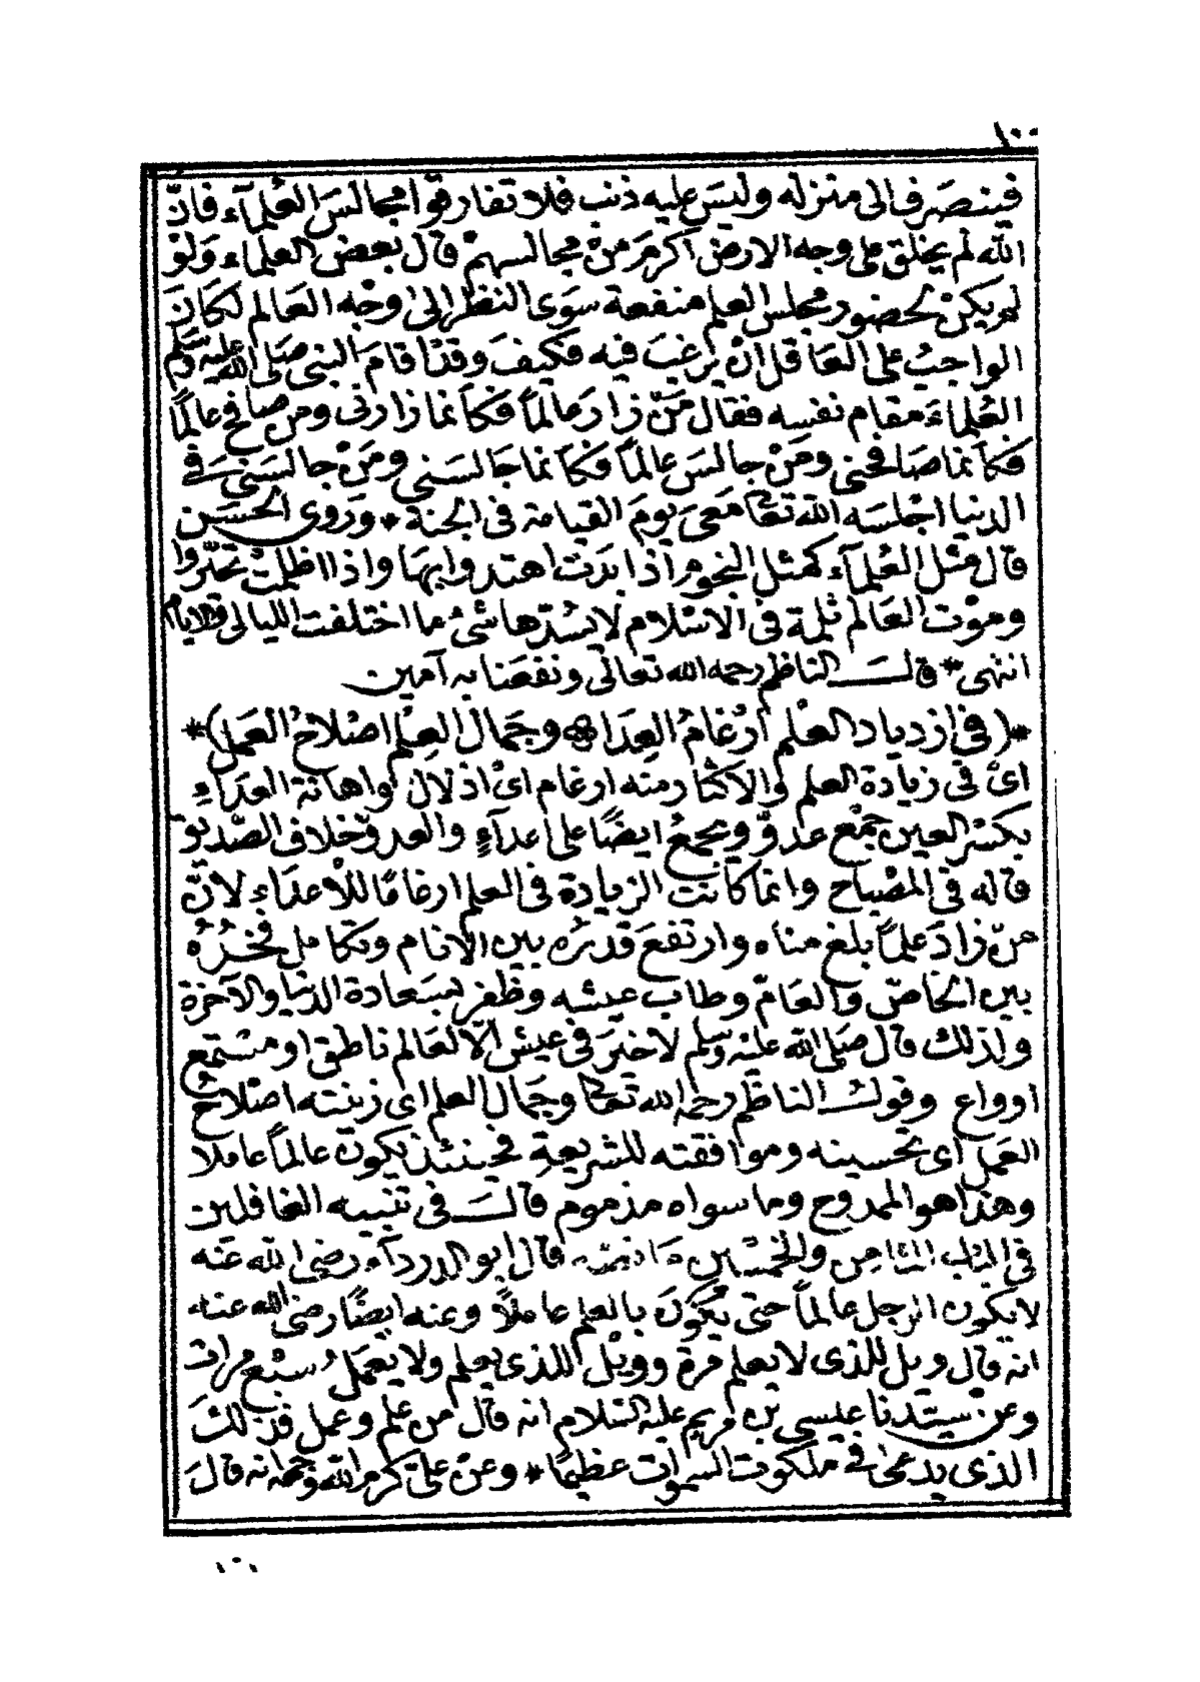 ١٠٠
فينصَرفُ الى منزله وليسَ عليه ذنب فلا تفارقوا مجالسَ العُلمآء فانّ
الله لم يخلق على وجه الارض اكرمَ منْ مجالسهمْ قال بعض العلماء ولوْ
لم يكنْ لحضور مجلس العلم منفعة سوَى النظر الى وجْه العَالم لكانَ
الواجبُ على العَاقل انْ يرغبَ فيه فكيفَ وقدْ اقامَ النبى صَلى الله عليه وسَلم
العُلماءَ مقام نفسه فقال مَنْ زارَ عالماً فكاَنما زارنى ومن صَافح عالماً
فكاَنما صَافحنى ومَنْ جالسَ عالماً فكاَنما جَالسَنى ومَنْ جالسَنى فى
الدنيا اجْلسَه الله تعالى مَعى يومَ القيامة فى الجنة * ورَوى الحسَن
قال مثل العُلمآء كمثل النجوم اذا بَدتْ اهتدوا بهَا واذا اظلمتْ تحيّروا
وموْت العَالم ثلمة فى الاسْلام لا يسُدّها شئ ما اختلفت الليالى والايام
انتهى * قالَ الناظم رحمه الله تعالى ونفعَنا به آمين
*(فى ازدياد العلْم ارْغامُ العِدَا وجَمالُ العِلْم اصْلاحُ العَمل)*
اىْ فى زيادة العلم والاكثار منه ارغام اىْ اذلال واهانة العدَاءِ
بكسْر العين جمْع عدوّ ويجمعُ ايضًا على اعدآءٍ والعدوّ خلاف الصَّديق
قاله فى المصْباح وانما كانت الزيادة فى العلم ارغامًا للاْعدَاء لانّ
منْ زادَ علماً بلغ مناه وارتفعَ قدْرُه بين الانام وتكامل فخْرُهُ
بين الخاصّ والعَامّ وطاب عيشه وظفر بسَعادة الدنيا والآخرة
ولذلك قال صَلى الله عليه وسلم لا خيْرَ فى عيْش الّا لعَالم ناطق او مسْتمع
او واع وقولُ الناظم رحمه الله تعالى وجَمال العلم اى زينته اصْلاحُ
العَمل اى تحسينه وموافقته للشريعةِ فحينئذ يكون عالماً عاملا
وهذا هو الممدوح وما سواه مذموم قالَ فى تنبيه الغافلين
فى الباب الثامِن والخمسين قال ابو الدرداء رضى الله عنه
لا يكون الرجل عالماً حتى يكونَ بالعلم عاملًا وعنه ايضًا رضى الله عنه
انه قال ويل للذى لا يعلم مرة وويْل للذى يعلم ولا يعْمَل سبْع مرات
وعن سيّدنا عيسى بن مريم عليه السلام انه قال من علم وعمل فذلكَ
الذى يدعَى فى ملكوت السموات عظيمًا * وعنْ علىّ كرم الله وجهه انه قالَ
١٠١